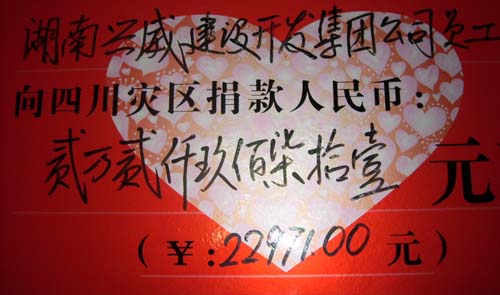 湖南兴威建设开发集团公司员工
向四川灾区捐款人民币：
贰万贰仟玖佰柒拾壹元
（￥:22971.00元）